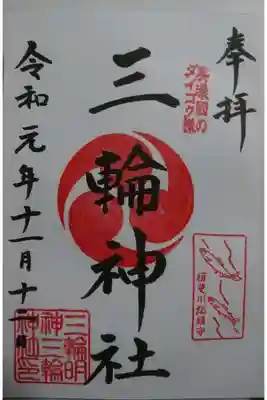 奉拝
美濃國の
ダイコク様
三輪神社
揖斐川
令和元年十一月十二日
三輪明
神三輪
神社之印